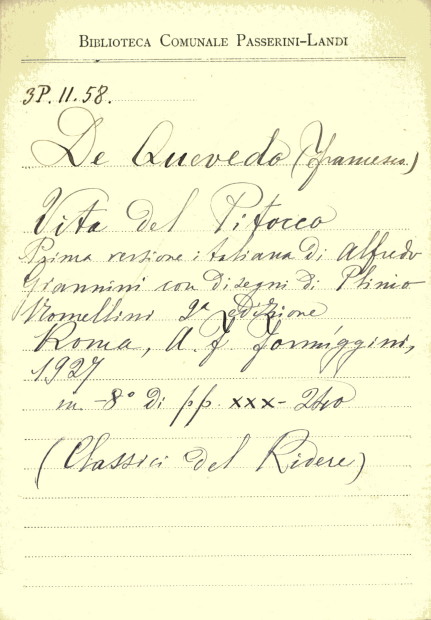 BIBLIOTECA COMUNALE PASSERINI-LANDI
3P.11.58.
De Quevedo (Francesco)
Vita del Pitocco
Prima versione italiana di Alfredo
Giannini con disegni di Plinio
Nomellini 2ª edizione
Roma, A. F. Formíggini,
1927
in-8° di pp. xxx-240
(Classici del Ridere)